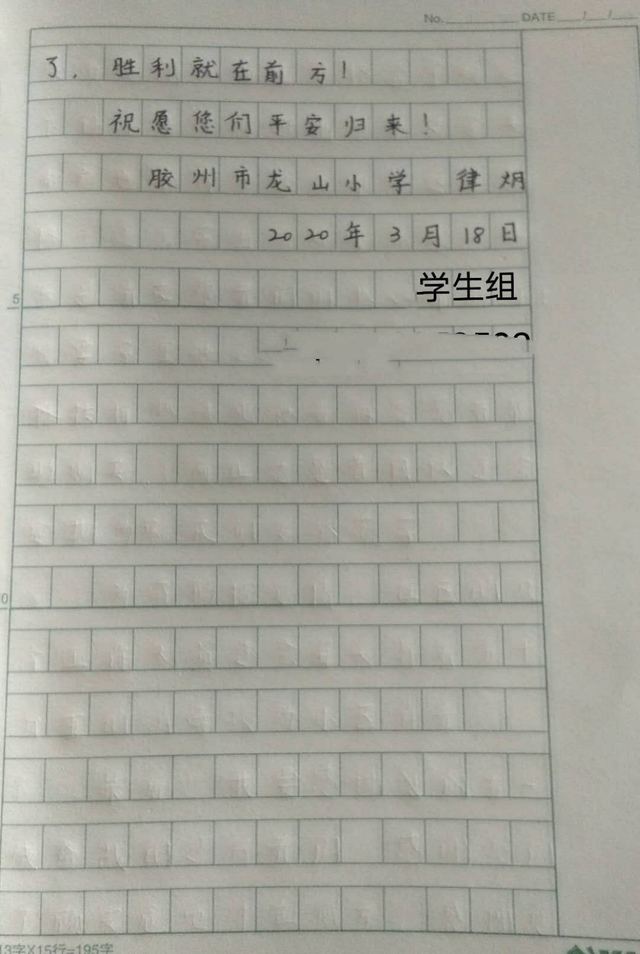 No. DATE / /
了，胜利就在前方！
祝愿您们平安归来！
胶州市龙山小学 律炳
2020年3月18日
5
学生组
0
13字X15行=195字